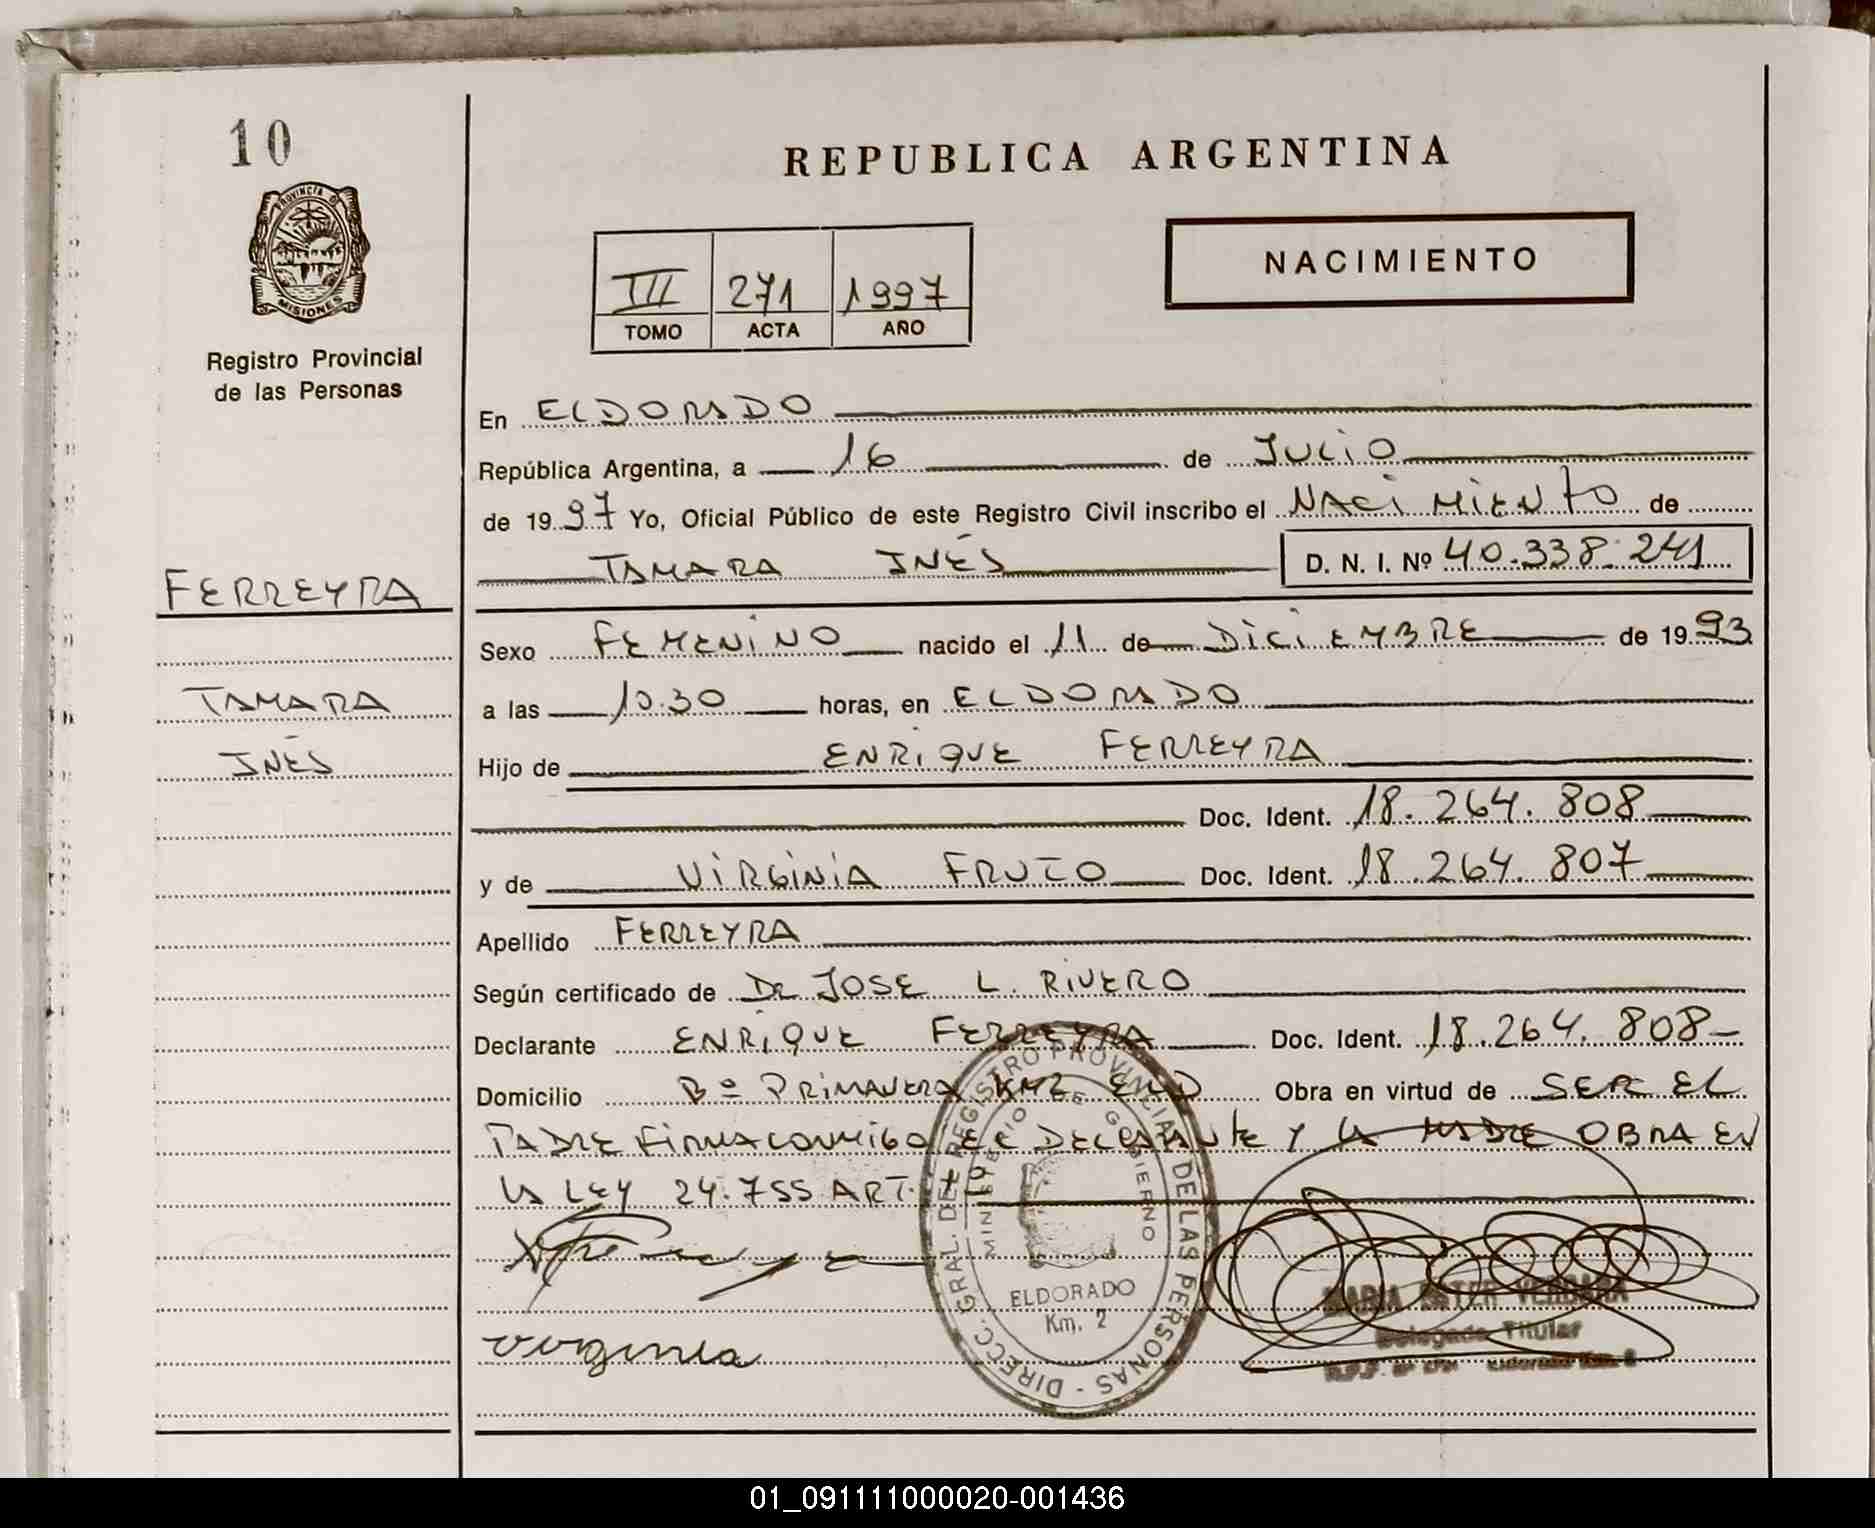 10
REPUBLICA ARGENTINA
PROVINCIA DE
MISIONES
Registro Provincial
de las Personas
III 271 1997
TOMO ACTA AÑO
NACIMIENTO
En ELDORADO
República Argentina, a 16 de JULIO
de 1997 Yo, Oficial Público de este Registro Civil inscribo el NACIMIENTO de
TAMARA INÉS D. N. I. Nº 40.338.241
FERREYRA
TAMARA
INÉS
Sexo FEMENINO nacido el 11 de DICIEMBRE de 1993
a las 10.30 horas, en ELDORADO
Hijo de ENRIQUE FERREYRA
Doc. Ident. 18.264.808
y de VIRGINIA FRUTO Doc. Ident. 18.264.807
Apellido FERREYRA
Según certificado de DE JOSE L. RIVERO
Declarante ENRIQUE FERREYRA Doc. Ident. 18.264.808
Domicilio Bº PRIMAVERA KM2 Obra en virtud de SER EL
PADRE FIRMA CONMIGO EL DECLARANTE Y LA MADRE OBRA EN
LA LEY 24.755 ART. 1º
DIRECC. GRAL. DEL REGISTRO PROVINCIAL DE LAS PERSONAS -
MINISTERIO DE GOBIERNO
ELDORADO
Km. 2
MARIA ESTER VERGARA
Delegada Titular
Virginia
01_091111000020-001436